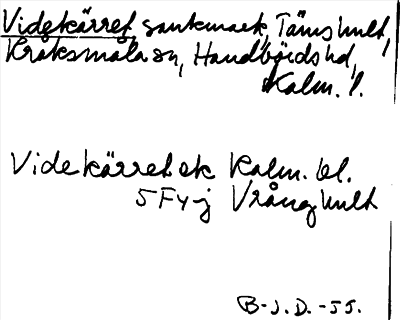 Videkärret, sankmark, Tämshult,
Kråksmåla sn, Handbörds hd,
Kalm. l.
Videkärret ek Kalm. bl.
5 F y-j Vrånghult
B-J.D.-55.